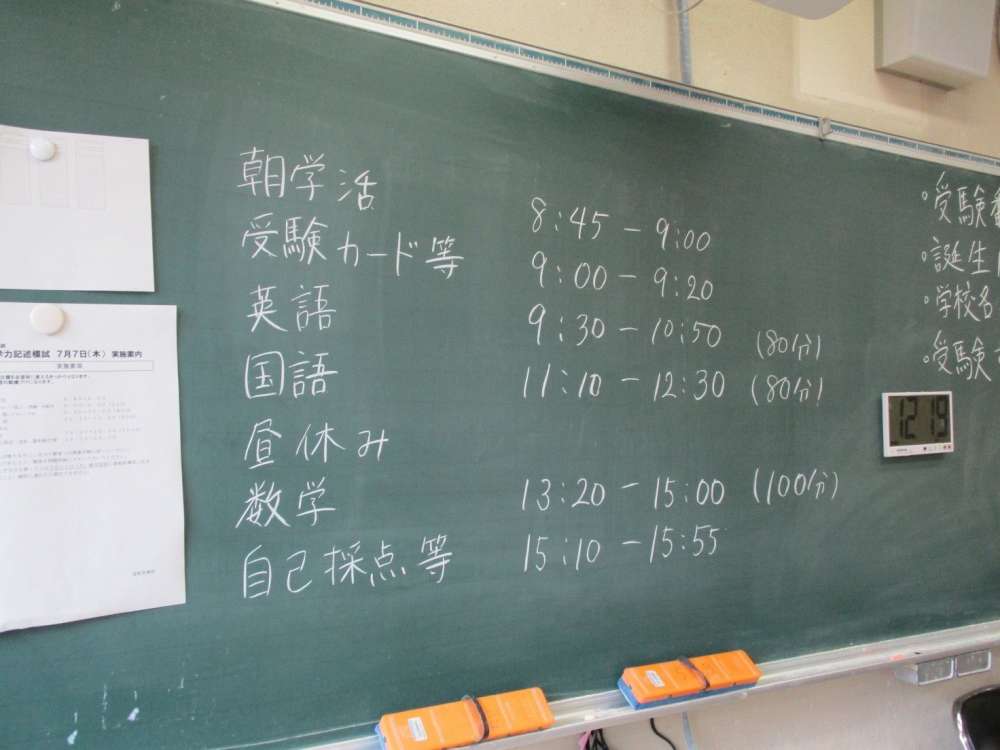 朝学活 8:45 - 9:00
受験カード等 9:00 - 9:20
英語 9:30 - 10:50 (80分)
国語 11:10 - 12:30 (80分)
昼休み
数学 13:20 - 15:00 (100分)
自己採点等 15:10 - 15:55
・受験
・誕生
・学校名
・受験
12:19
学力記述模試 7月7日(木) 実施案内
実施要項